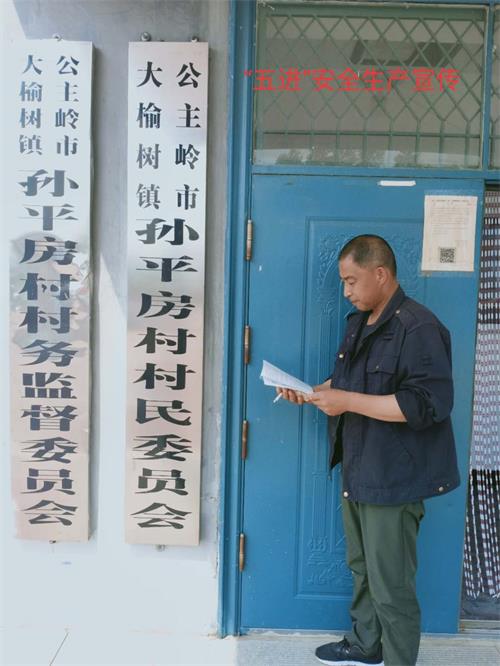 “五进”安全生产宣传
公主岭市
大榆树镇
孙平房村村务监督委员会
公主岭市
大榆树镇
孙平房村村民委员会